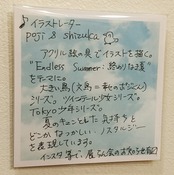 イラストレーター
poji & shizuka
アクリル絵の具でイラストを描く。
"Endless Summer: 終わりなき夏"
をテーマに。
大きい鳥(文鳥=
シリーズ。ツインテール少女シリーズ。
Tokyo少年シリーズ。
夏のキュンとした気持ちと
どこかなつかしい、ノスタルジー
を表現しています。
インスタ等で、展らん会のお知らせも